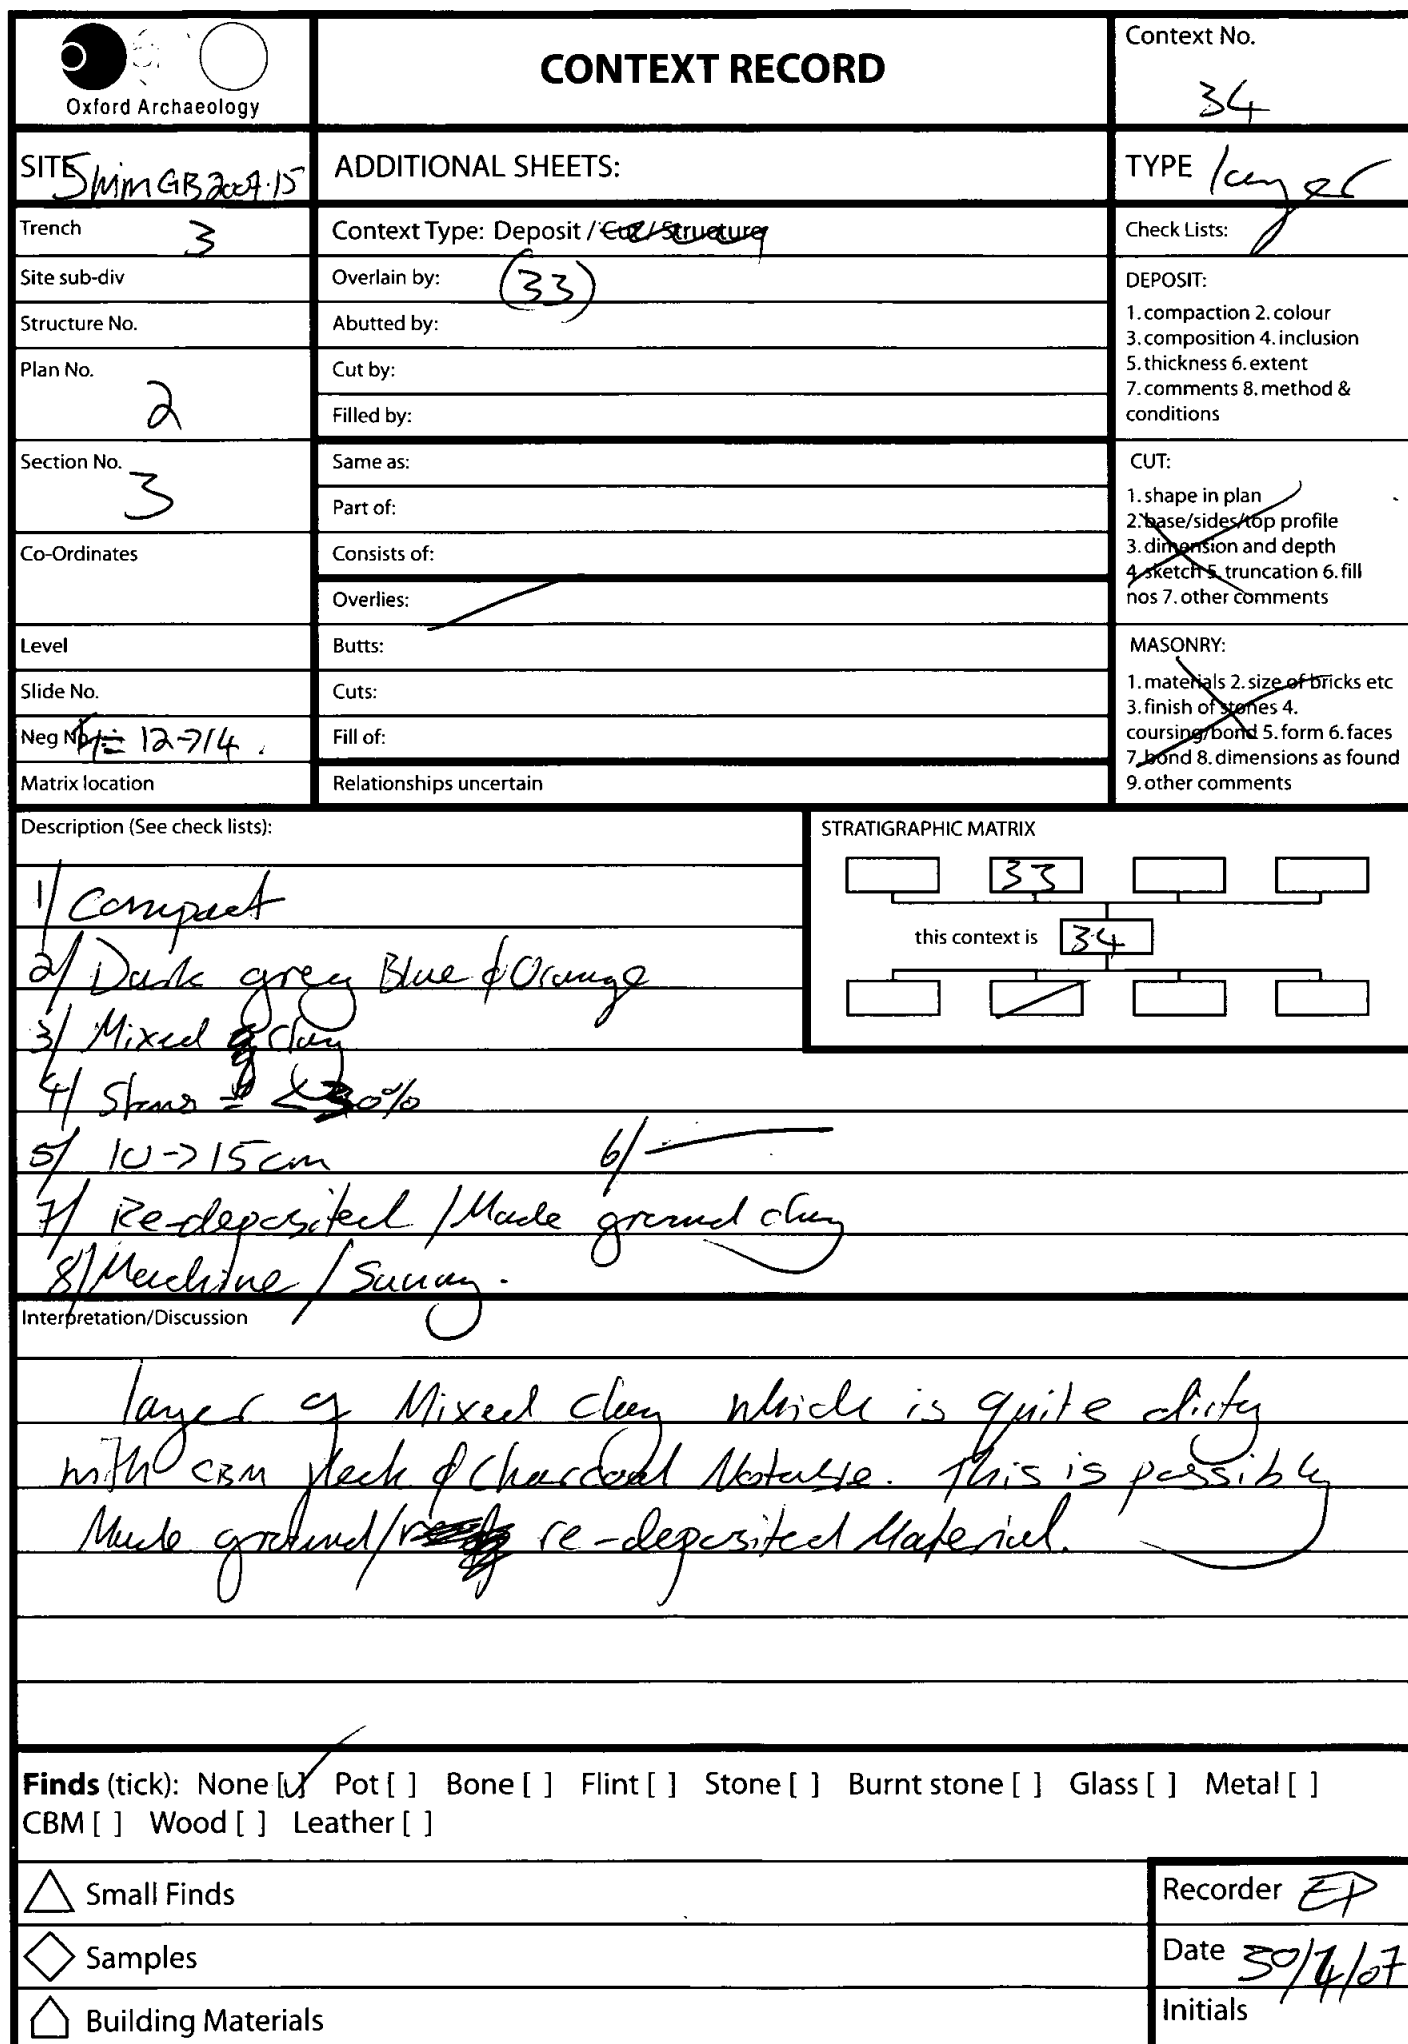 Oxford Archaeology
CONTEXT RECORD
Context No.
34
SITE
ADDITIONAL SHEETS:
TYPE layer
Trench 3
Context Type: Deposit / Cut / Structure
Check Lists:
Site sub-div
Overlain by: (33)
Structure No.
Abutted by:
Plan No. 2
Cut by:
Filled by:
Section No. 3
Same as:
Part of:
Co-Ordinates
Consists of:
Overlies:
Level
Butts:
Slide No.
Cuts:
Neg No. 12→14.
Fill of:
Matrix location
Relationships uncertain
DEPOSIT:
1. compaction 2. colour
3. composition 4. inclusion
5. thickness 6. extent
7. comments 8. method &
conditions
CUT:
1. shape in plan
2. base/sides/top profile
3. dimension and depth
4. sketch 5. truncation 6. fill
nos 7. other comments
MASONRY:
1. materials 2. size of bricks etc
3. finish of stones 4.
coursing/bond 5. form 6. faces
7. bond 8. dimensions as found
9. other comments
Description (See check lists):
1/ Compact
2/ Dark grey Blue & Orange
3/ Mixed clay
4/ Stones = <30%
5/ 10->15cm 6/ —
7/ Re-deposited / Made ground clay
8/ Machine / Sunny.
STRATIGRAPHIC MATRIX
33
this context is 34
Interpretation/Discussion
layer of Mixed clay which is quite dirty
with CBM fleck & Charcoal Notable. This is possibly
Made ground/ re-deposited Material.
Finds (tick): None [✓] Pot [ ] Bone [ ] Flint [ ] Stone [ ] Burnt stone [ ] Glass [ ] Metal [ ]
CBM [ ] Wood [ ] Leather [ ]
Small Finds
Samples
Building Materials
Recorder EP
Date 30/4/07
Initials